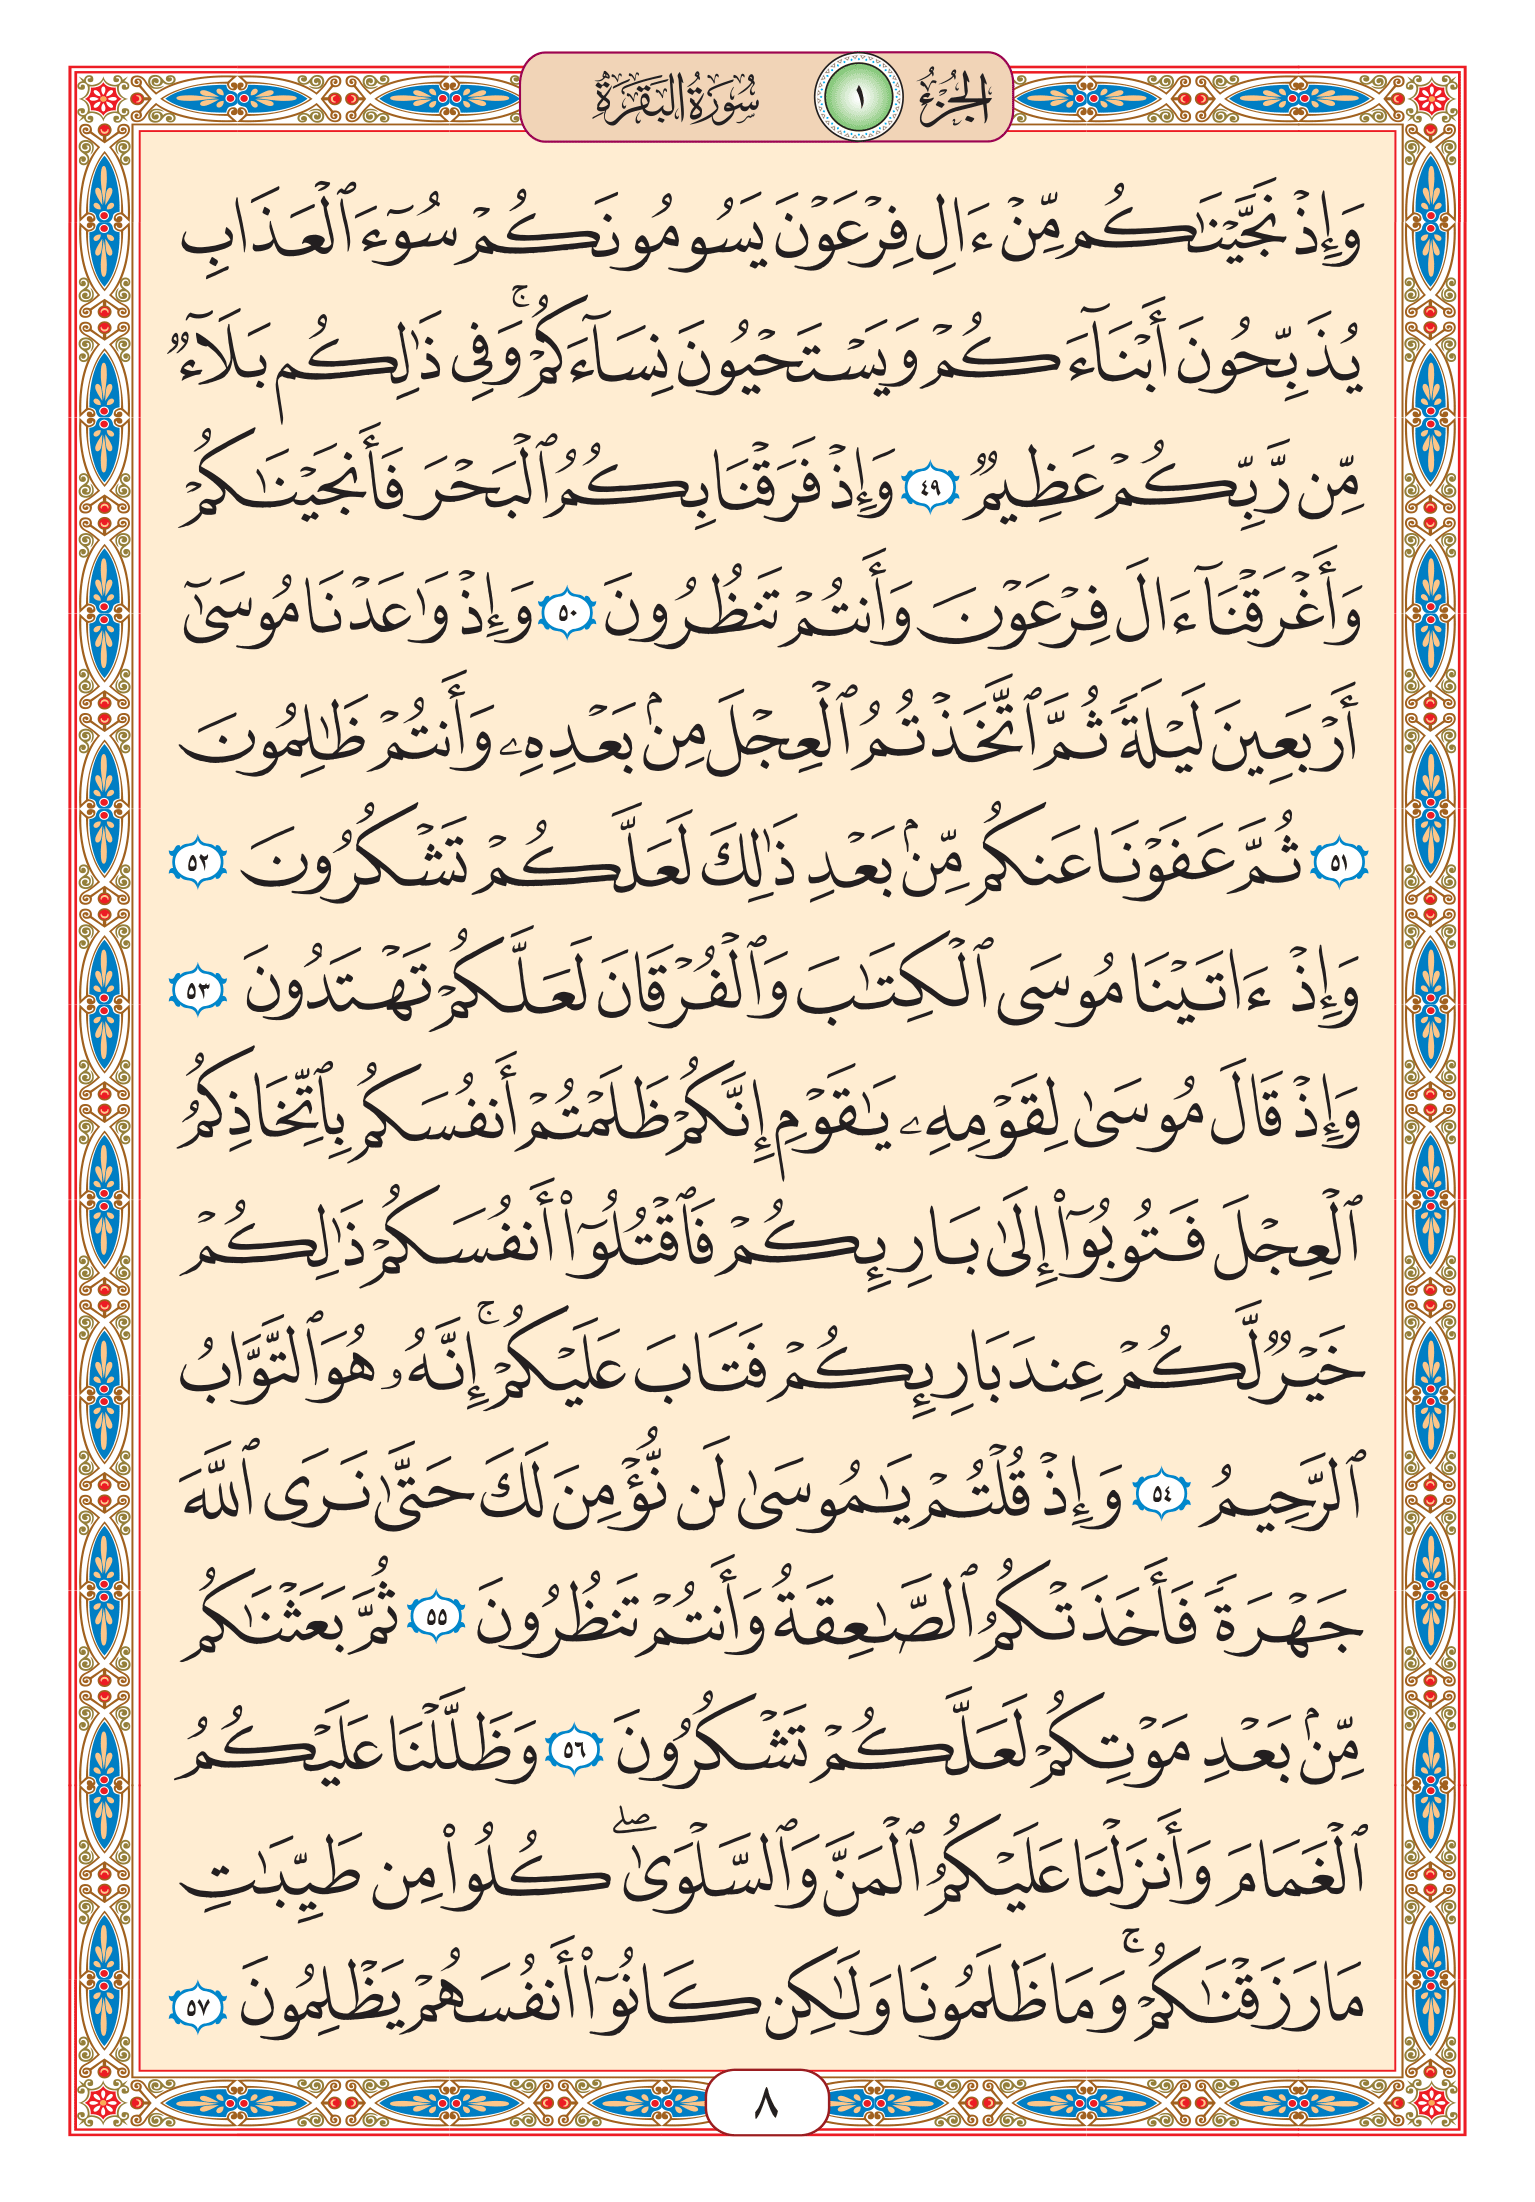 الجزء ١ سورة البقرة
وَإِذْ نَجَّيْنَٰكُم مِّنْ ءَالِ فِرْعَوْنَ يَسُومُونَكُمْ سُوٓءَ ٱلْعَذَابِ
يُذَبِّحُونَ أَبْنَآءَكُمْ وَيَسْتَحْيُونَ نِسَآءَكُمْ ۚ وَفِى ذَٰلِكُم بَلَآءٌ
مِّن رَّبِّكُمْ عَظِيمٌ ٤٩ وَإِذْ فَرَقْنَا بِكُمُ ٱلْبَحْرَ فَأَنجَيْنَٰكُمْ
وَأَغْرَقْنَآ ءَالَ فِرْعَوْنَ وَأَنتُمْ تَنظُرُونَ ٥٠ وَإِذْ وَٰعَدْنَا مُوسَىٰٓ
أَرْبَعِينَ لَيْلَةً ثُمَّ ٱتَّخَذْتُمُ ٱلْعِجْلَ مِنۢ بَعْدِهِۦ وَأَنتُمْ ظَٰلِمُونَ
٥١ ثُمَّ عَفَوْنَا عَنكُم مِّنۢ بَعْدِ ذَٰلِكَ لَعَلَّكُمْ تَشْكُرُونَ ٥٢
وَإِذْ ءَاتَيْنَا مُوسَى ٱلْكِتَٰبَ وَٱلْفُرْقَانَ لَعَلَّكُمْ تَهْتَدُونَ ٥٣
وَإِذْ قَالَ مُوسَىٰ لِقَوْمِهِۦ يَٰقَوْمِ إِنَّكُمْ ظَلَمْتُمْ أَنفُسَكُم بِٱتِّخَاذِكُمُ
ٱلْعِجْلَ فَتُوبُوٓا۟ إِلَىٰ بَارِئِكُمْ فَٱقْتُلُوٓا۟ أَنفُسَكُمْ ذَٰلِكُمْ
خَيْرٌ لَّكُمْ عِندَ بَارِئِكُمْ فَتَابَ عَلَيْكُمْ ۚ إِنَّهُۥ هُوَ ٱلتَّوَّابُ
ٱلرَّحِيمُ ٥٤ وَإِذْ قُلْتُمْ يَٰمُوسَىٰ لَن نُّؤْمِنَ لَكَ حَتَّىٰ نَرَى ٱللَّهَ
جَهْرَةً فَأَخَذَتْكُمُ ٱلصَّٰعِقَةُ وَأَنتُمْ تَنظُرُونَ ٥٥ ثُمَّ بَعَثْنَٰكُم
مِّنۢ بَعْدِ مَوْتِكُمْ لَعَلَّكُمْ تَشْكُرُونَ ٥٦ وَظَلَّلْنَا عَلَيْكُمُ
ٱلْغَمَامَ وَأَنزَلْنَا عَلَيْكُمُ ٱلْمَنَّ وَٱلسَّلْوَىٰ ۖ كُلُوا۟ مِن طَيِّبَٰتِ
مَا رَزَقْنَٰكُمْ ۚ وَمَا ظَلَمُونَا وَلَٰكِن كَانُوٓا۟ أَنفُسَهُمْ يَظْلِمُونَ ٥٧
٨